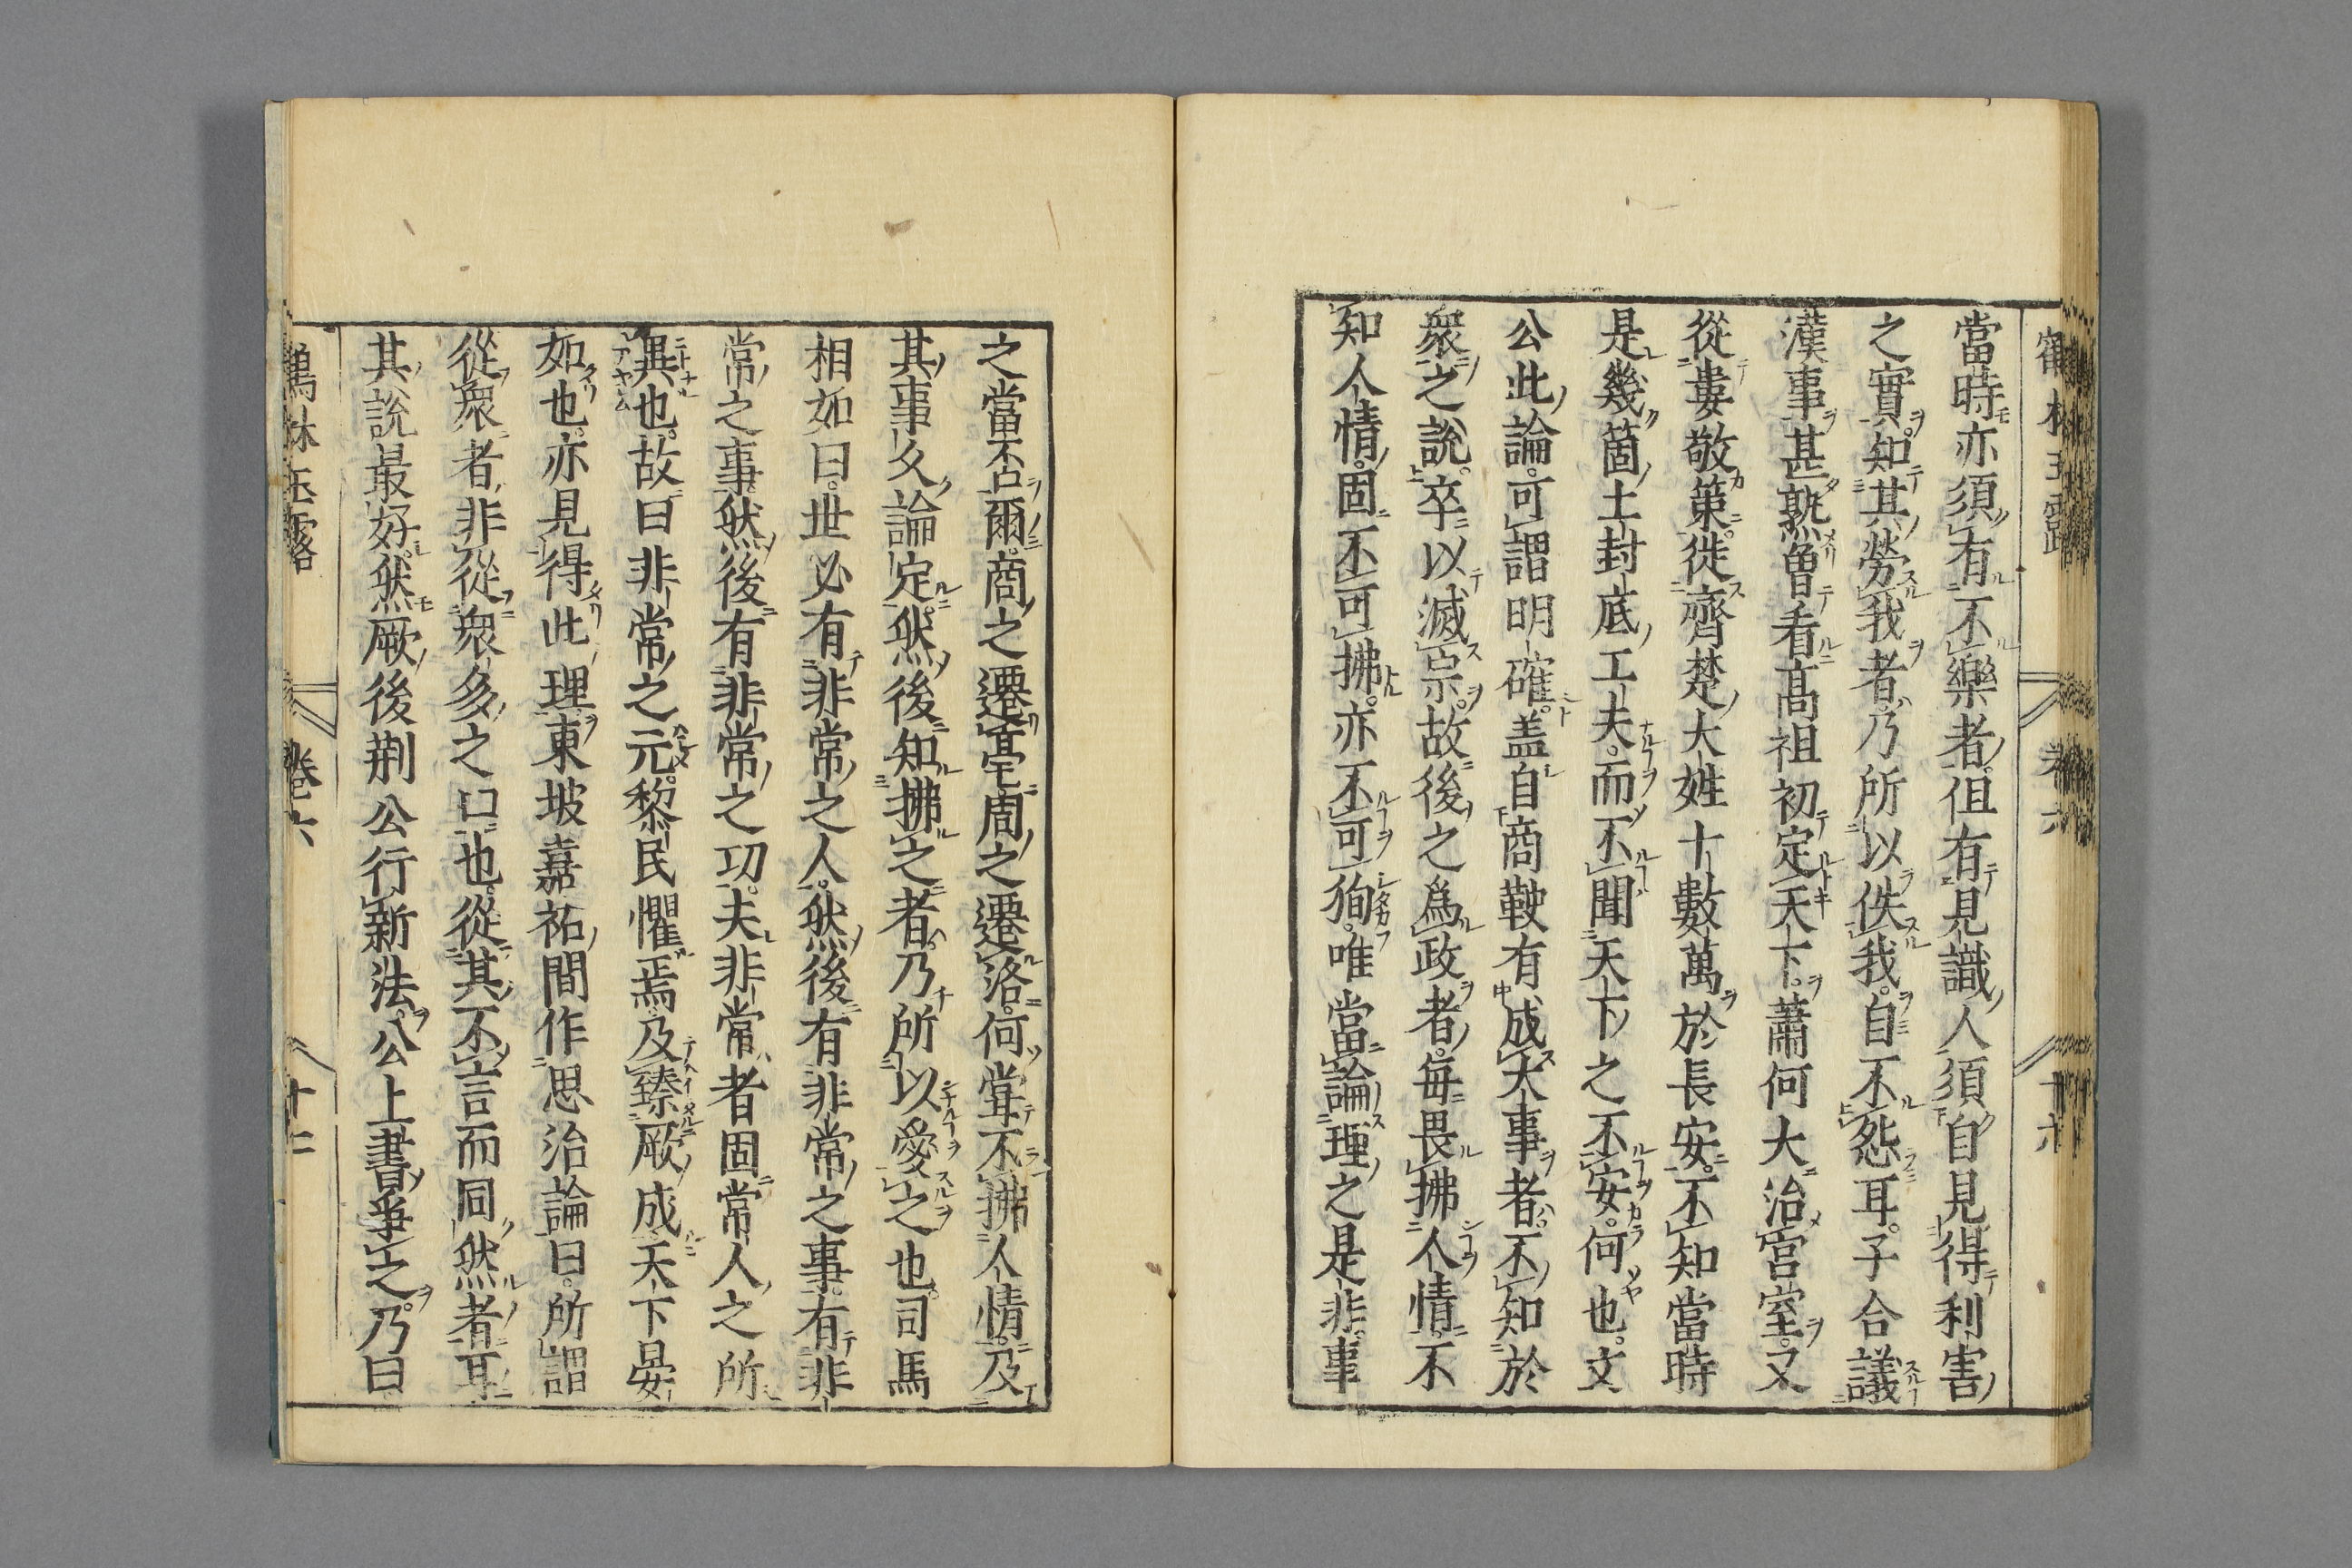 當時亦須有不樂者但有見識人須自見得利害
之實知其勞我者乃所以佚我自不怨耳子合議
漢事甚熟曾看高祖初定天下蕭何大治宮室又
從婁敬策徙齊楚大姓十數萬於長安不知當時
是幾箇土封底工夫而不聞天下之不安何也文
公此論可謂明確盖自商鞅有成大事者不知於
衆之說卒以滅宗故後之爲政者每畏拂人情不
知人情固不可拂亦不可狥唯當論理之是非事
之當否爾商之遷亳周之遷洛何甞不拂人情及
其事久論定然後知拂之者乃所以愛之也司馬
相如曰世必有非常之人然後有非常之事有非
常之事然後有非常之功夫非常者固常人之所
異也故曰非常之元黎民懼焉及臻厥成天下晏
如也亦見得此理東坡嘉祐間作思治論曰所謂
從衆者非從衆多之口也從其不言而同然者耳
其說最好然厥後荆公行新法公上書爭之乃曰
鶴林玉露
卷六